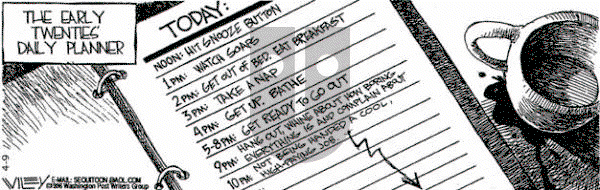 THE EARLY
TWENTIES'
DAILY PLANNER
TODAY:
NOON: HIT SNOOZE BUTTON
1PM: WATCH SOAPS
2PM: GET OUT OF BED. EAT BREAKFAST
3PM: TAKE A NAP
4PM: GET UP. BATHE
5-8PM: GET READY TO GO OUT
9PM: HANG OUT, WHINE ABOUT HOW BORING
EVERYTHING IS AND COMPLAIN ABOUT
NOT BEING HANDED A COOL,
10PM: HIGH-PAYING JOB
4-9
WILEY
E-MAIL: SEQUITOON@AOL.COM
©2006 Washington Post Writers Group